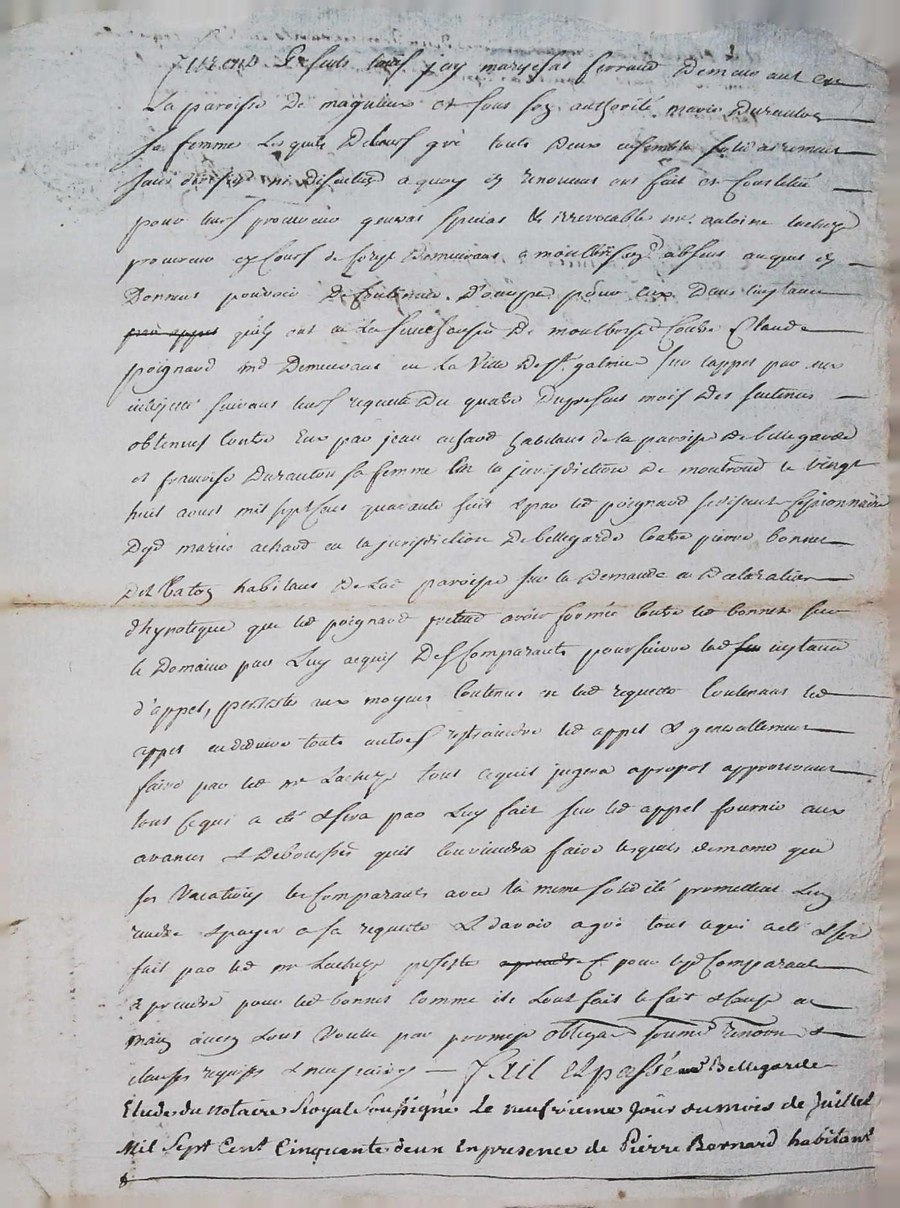 furent presents Louis fery marechal ferrand demeurant en
La paroisse de maguieu et sous son authorité marie Duranton
sa femme Lesquels de leurs gré touts deux ensemble solidairement
sans division ni discution a quoy ils renoncent ont fait et constitué
pour leurs procureur general special & irrevocable me. antoine
procureur es Cours de demeurant a montbrison absent auquel ils
donnent pouvoir de soutenir D'occuper pour eux dans l'instance
par appel qu'ils ont en La senechaussée de montbrison contre Claude
poignard md Demeurant en La Ville de st. galmier sur l'appel par eux
interjetté suivant leurs requette du quatre du present mois des sentences
obtenues contre Eux par jean achard habitant de la paroisse de bellegarde
et francoise Duranton sa femme en la jurisdiction de montrond le vingt
huit aoust mil sept Cent quarante huit & par led poignard se disant Cessionnaire
Dud marie achard en la jurisdiction de bellegarde contre pierre bonnet
habitant de lad paroisse sur la demande en declaration
d'hypoteque que led poignard pretend avoir formée contre led bonnet sur
le Domaine par Luy acquis Des Comparants poursuivre lad instance
d'appel, persister aux moyens contenus en lad requette contenant led
appel en deduire touts autres restraindre led appel & generallement
faire par led me tout cequil jugera apropos approuvant
tout cequi a été & sera par Luy fait sur led appel fournir aux
avances & Deboursés quil conviendra faire lesquels de meme que
ses vacations les Comparants avec la meme solidité promettent Luy
rendre & payer a sa requette & d'avoir agré tout cequi a été & sera
fait par led me pour lesd Comparants
a prendre pour led bonnet comme ils sont fait le fait & cause en
main ainsy Lont voulu par promesse obligaon soumis renonon &
clauses requises & necessaires — fait et passé a Bellegarde
Etude du notaire Royal Soussigné Le neufvieme Jour du mois de Juillet
Mil Sept Cent Cinquante deux En presence de Pierre Bornard habitant